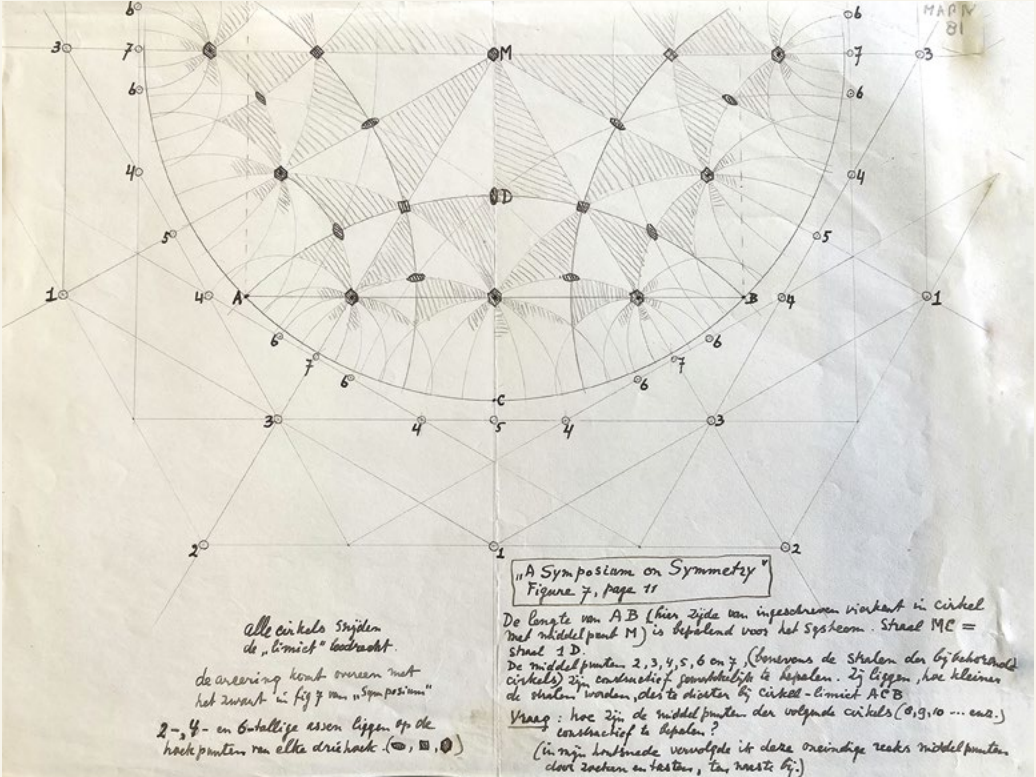 MAP IV
81
6
6
3
7
M
7
3
6
6
4
4
D
5
5
1
4
A
B
4
1
6
6
7
7
6
6
C
3
4
5
4
3
2
1
2
„A Symposium on Symmetry"
Figure 7, page 11
alle cirkels snijden
de „limiet" loodrecht.
de arcering komt overeen met
het zwart in fig 7 van „Symposium"
2-, 4- en 6-tallige assen liggen op de
hoekpunten van elke driehoek. ( , , )
De lengte van AB (hier zijde van ingeschreven vierkant in cirkel
met middelpunt M) is bepalend voor het systeem. Straal MC =
straal 1 D.
De middelpunten 2, 3, 4, 5, 6 en 7, (benevens de stralen der bijbehorende
cirkels) zijn constructief gemakkelijk te bepalen. Zij liggen, hoe kleiner
de stralen worden, des te dichter bij cirkel-limiet ACB
Vraag: hoe zijn de middelpunten der volgende cirkels (8, 9, 10 .... enz.)
constructief te bepalen?
(in mijn houtsnede vervolgde ik deze oneindige reeks middelpunten
door zoeken en tasten, ten naaste bij.)